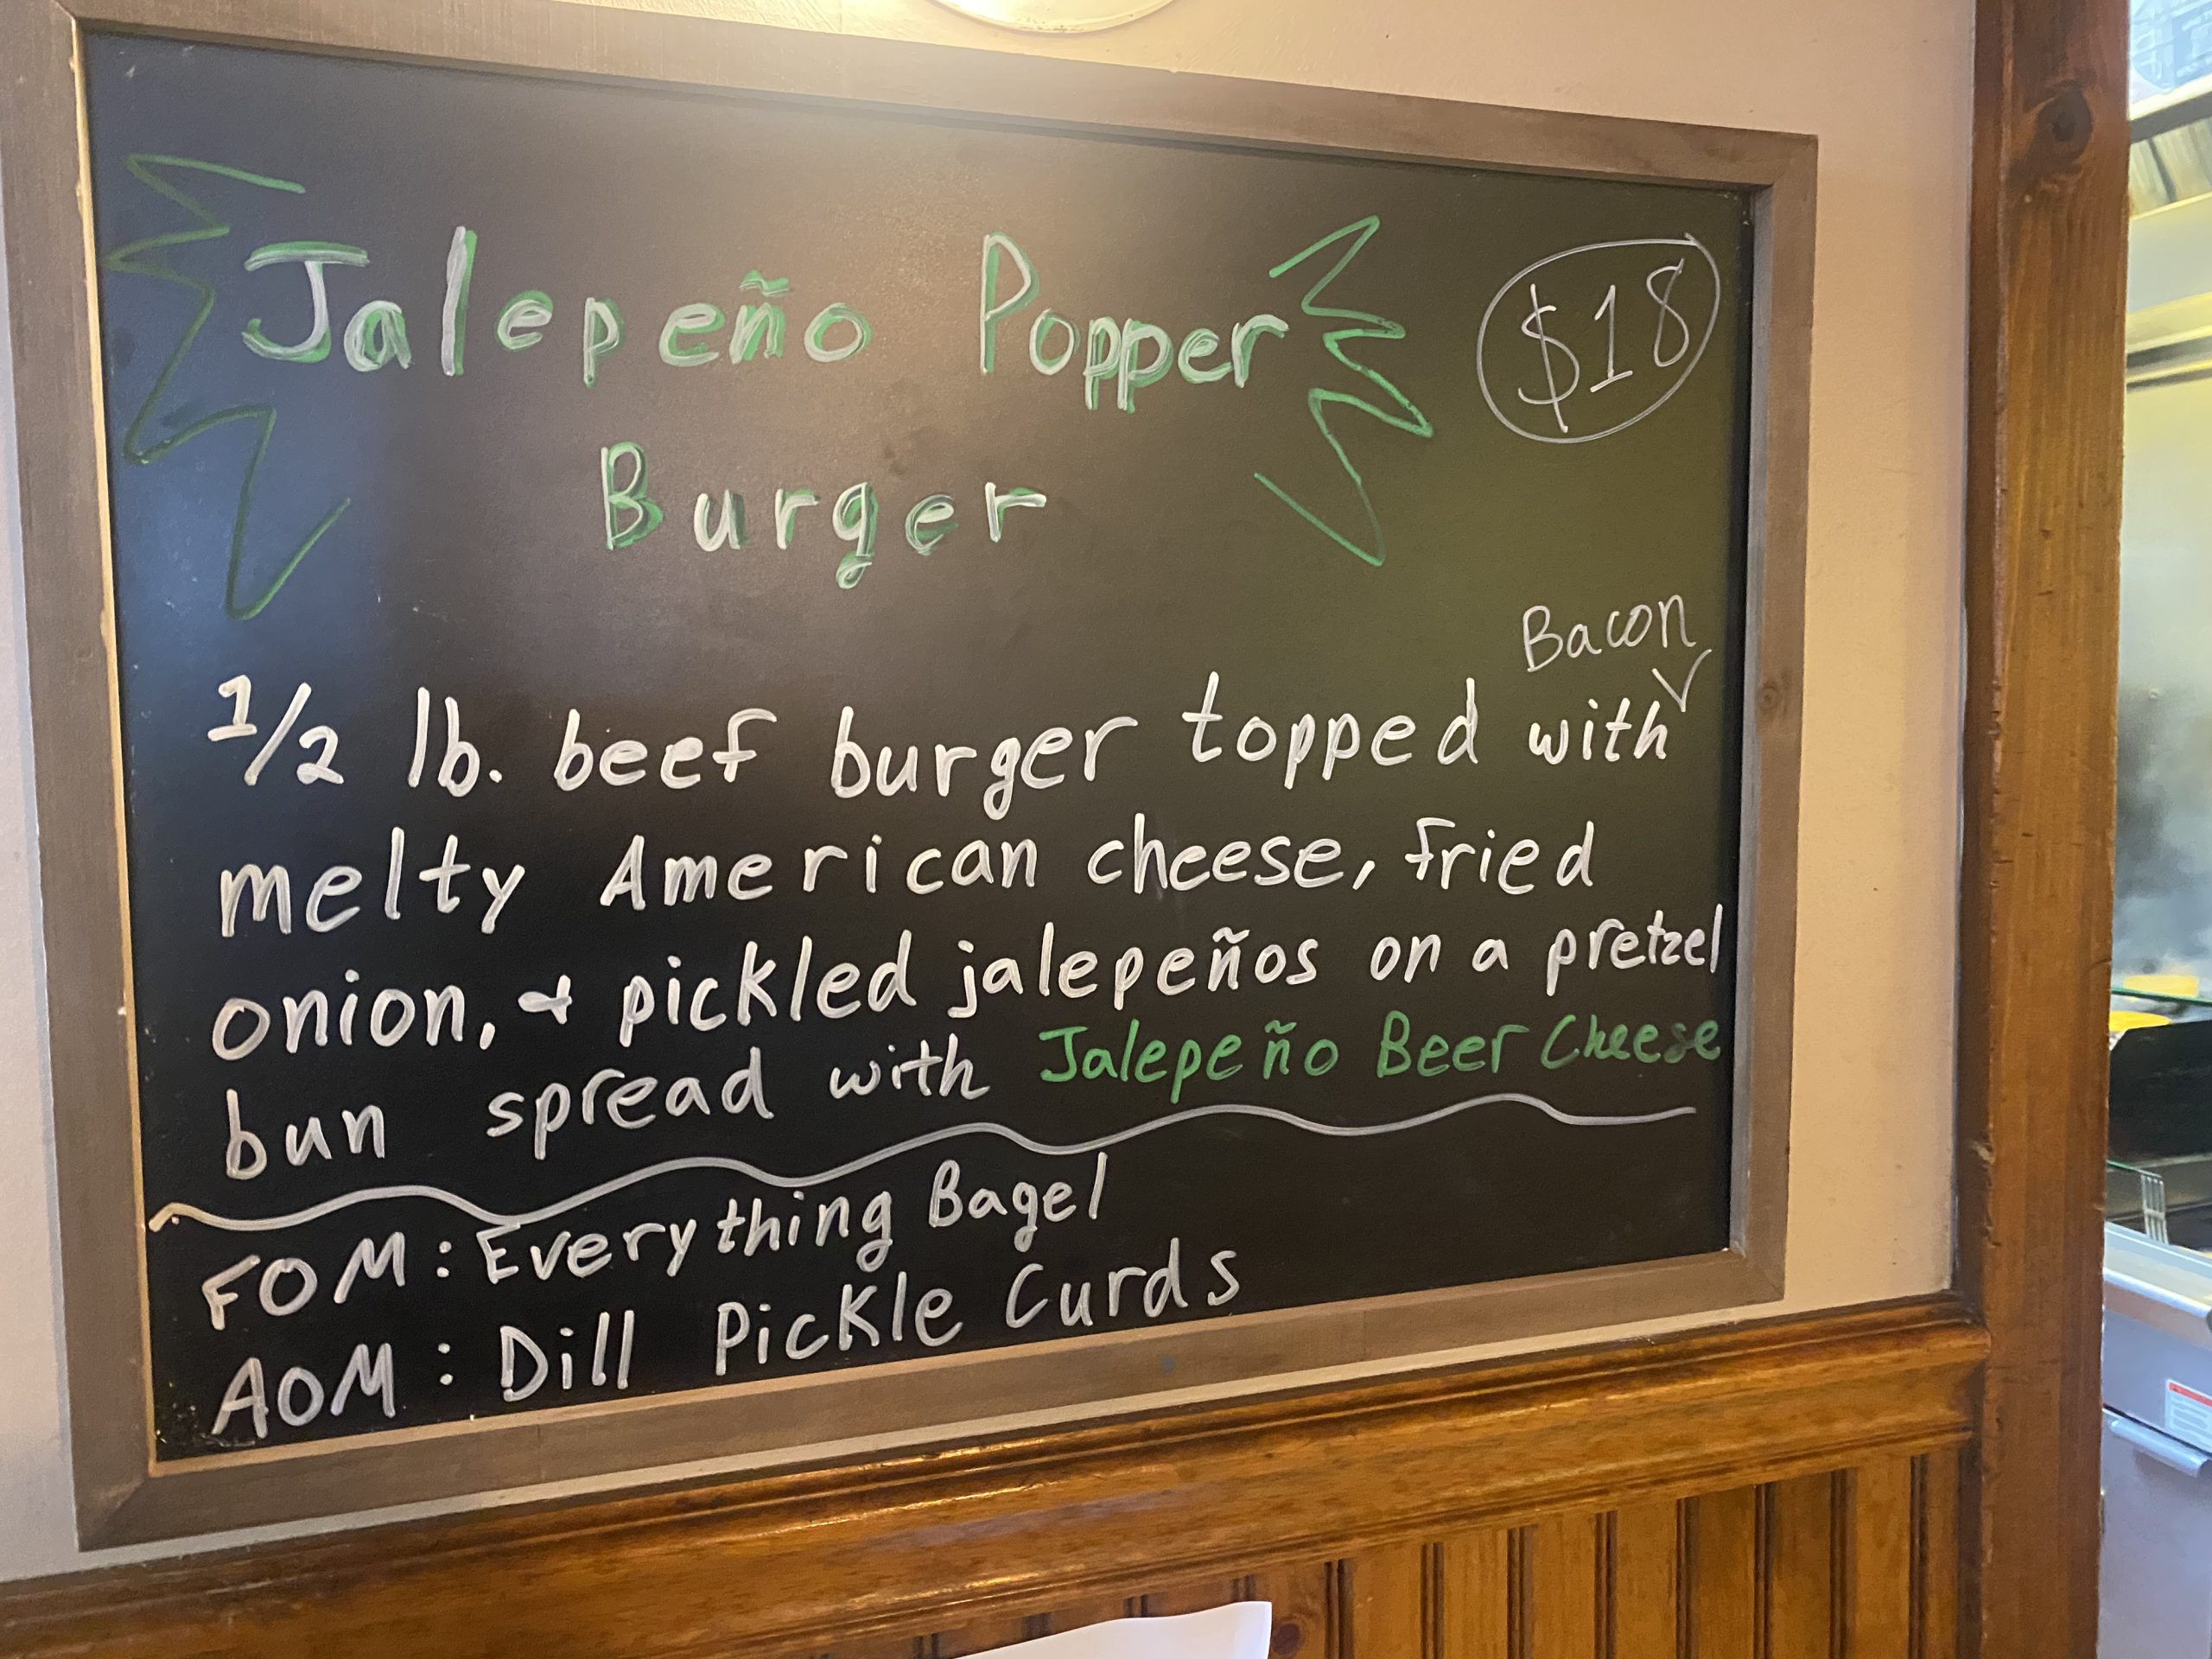 Jalepeño Popper $18
Burger
Bacon
1/2 lb. beef burger topped with
melty American cheese, fried
onion, & pickled jalepeños on a pretzel
bun spread with Jalepeño Beer Cheese
FOM: Everything Bagel
AOM: Dill Pickle Curds